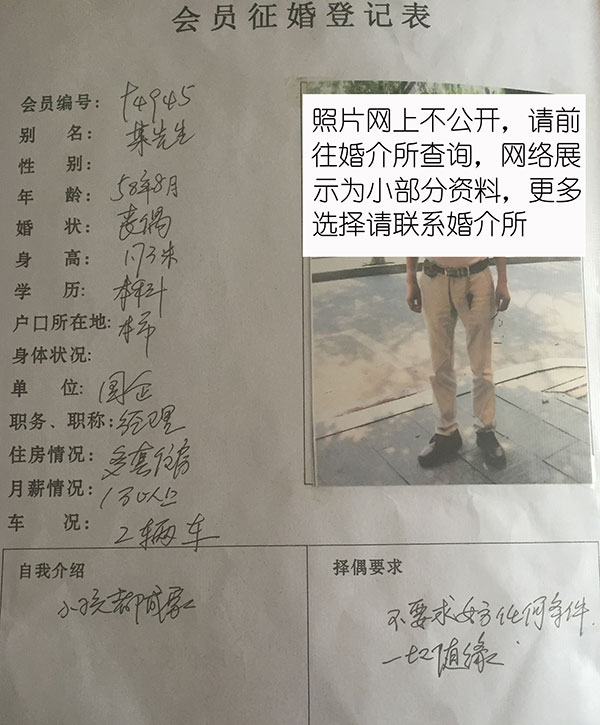 会员征婚登记表
会员编号：t4945
别 名：某先生
性 别：
年 龄：58年8月
婚 状：丧偶
身 高：1.73米
学 历：本科
户口所在地：本市
身体状况：
单 位：国企
职务、职称：经理
住房情况：多套住房
月薪情况：1万以上
车 况：2辆车
照片网上不公开，请前
往婚介所查询，网络展
示为小部分资料，更多
选择请联系婚介所
自我介绍
小孩都成家
择偶要求
不要求女方任何条件.
一切随缘.